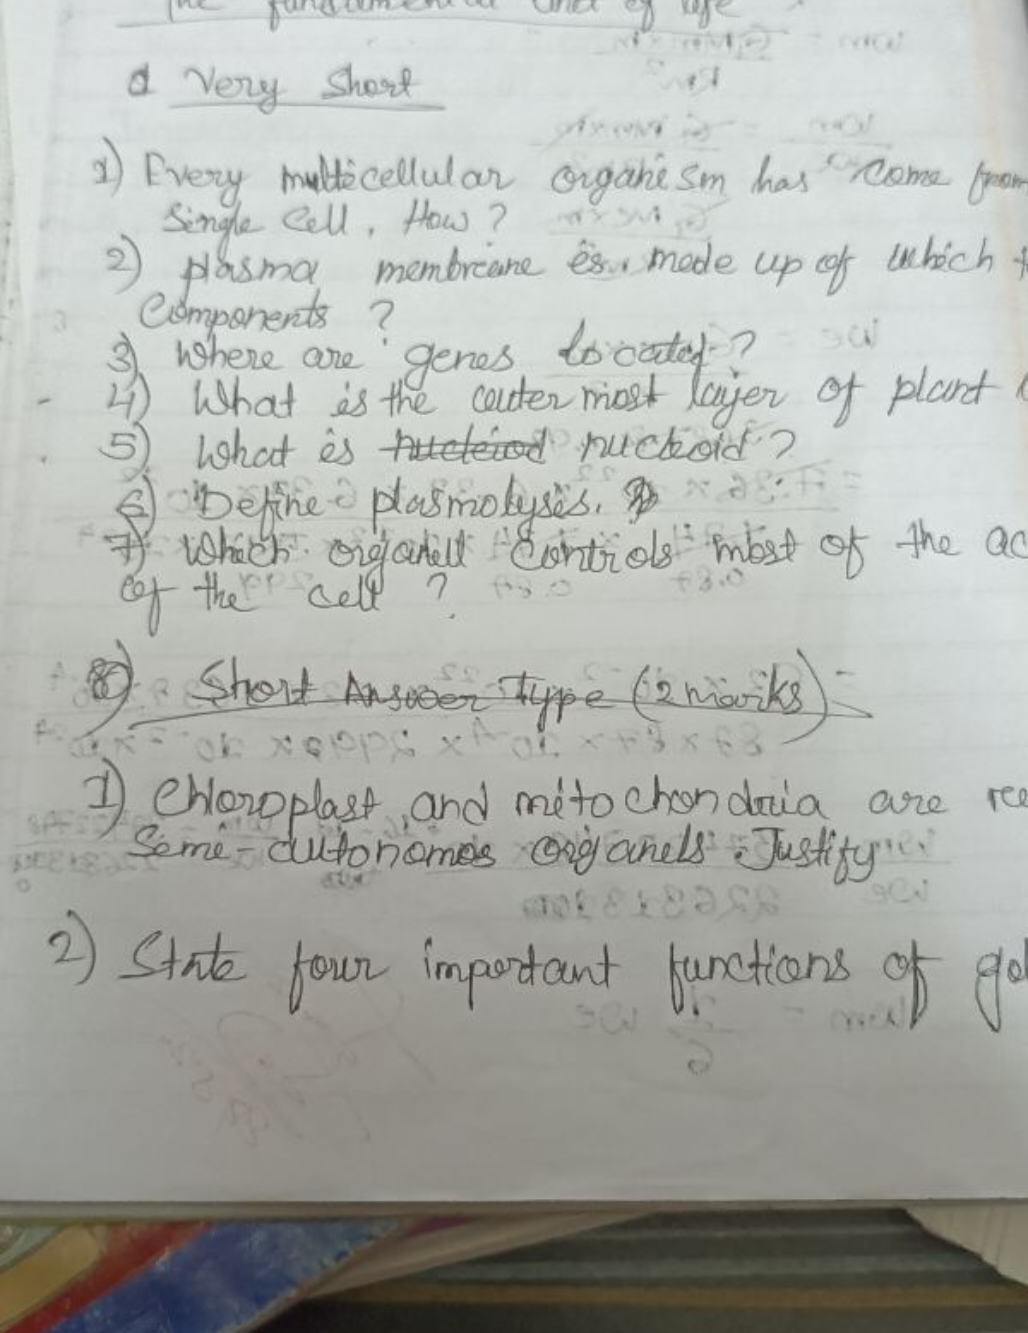 The fundamental unit of life
Very Short
1) Every multicellular organism has come from
Single Cell. How?
2) plasma membrane is made up of which
Components ?
3) Where are genes located ?
4) What is the outer most layer of plant
5) What is nucleoid ?
6) Define plasmolysis.
7) Which organell Controls most of the ac
of the cell ?
8) Short Answer Type (2 marks)
1) Chloroplast and mitochondria are
Seme-autonomos organels. Justify
2) State four important functions of gol